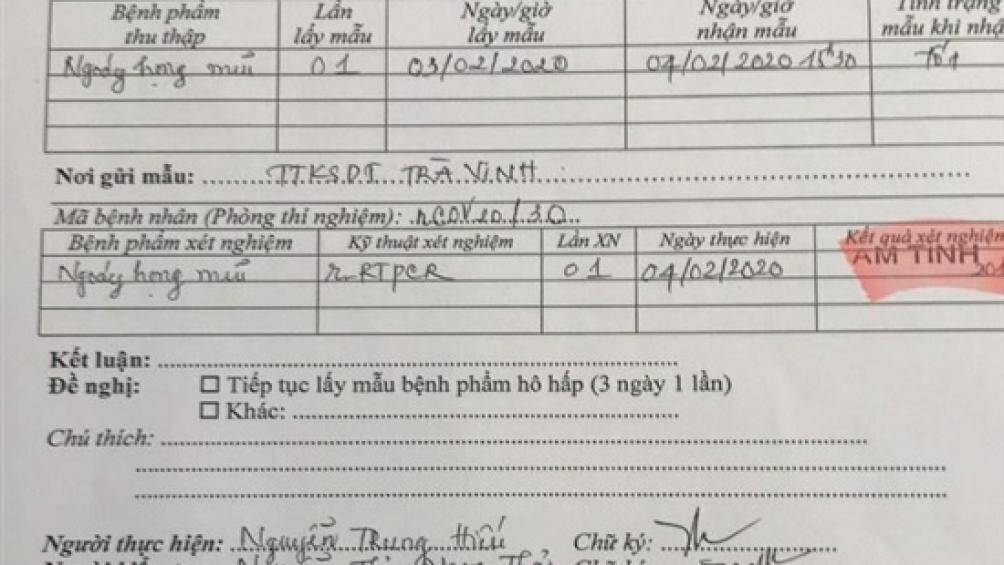 Bệnh phẩm thu thập Lần lấy mẫu Ngày/giờ lấy mẫu Ngày/giờ nhận mẫu Tình trạng mẫu khi nhậ
Ngoáy họng mũi 01 03/02/2020 04/02/2020 15h30 Tốt
Nơi gửi mẫu: TTKSDT TRÀ VINH
Mã bệnh nhân (Phòng thí nghiệm): nCOV20/30
Bệnh phẩm xét nghiệm Kỹ thuật xét nghiệm Lần XN Ngày thực hiện Kết quả xét nghiệm
Ngoáy họng mũi r.RTPCR 01 04/02/2020 ÂM TÍNH
Kết luận:
Đề nghị: ☐ Tiếp tục lấy mẫu bệnh phẩm hô hấp (3 ngày 1 lần)
☐ Khác:
Chú thích:
Người thực hiện: Nguyễn Trung Hiếu Chữ ký: